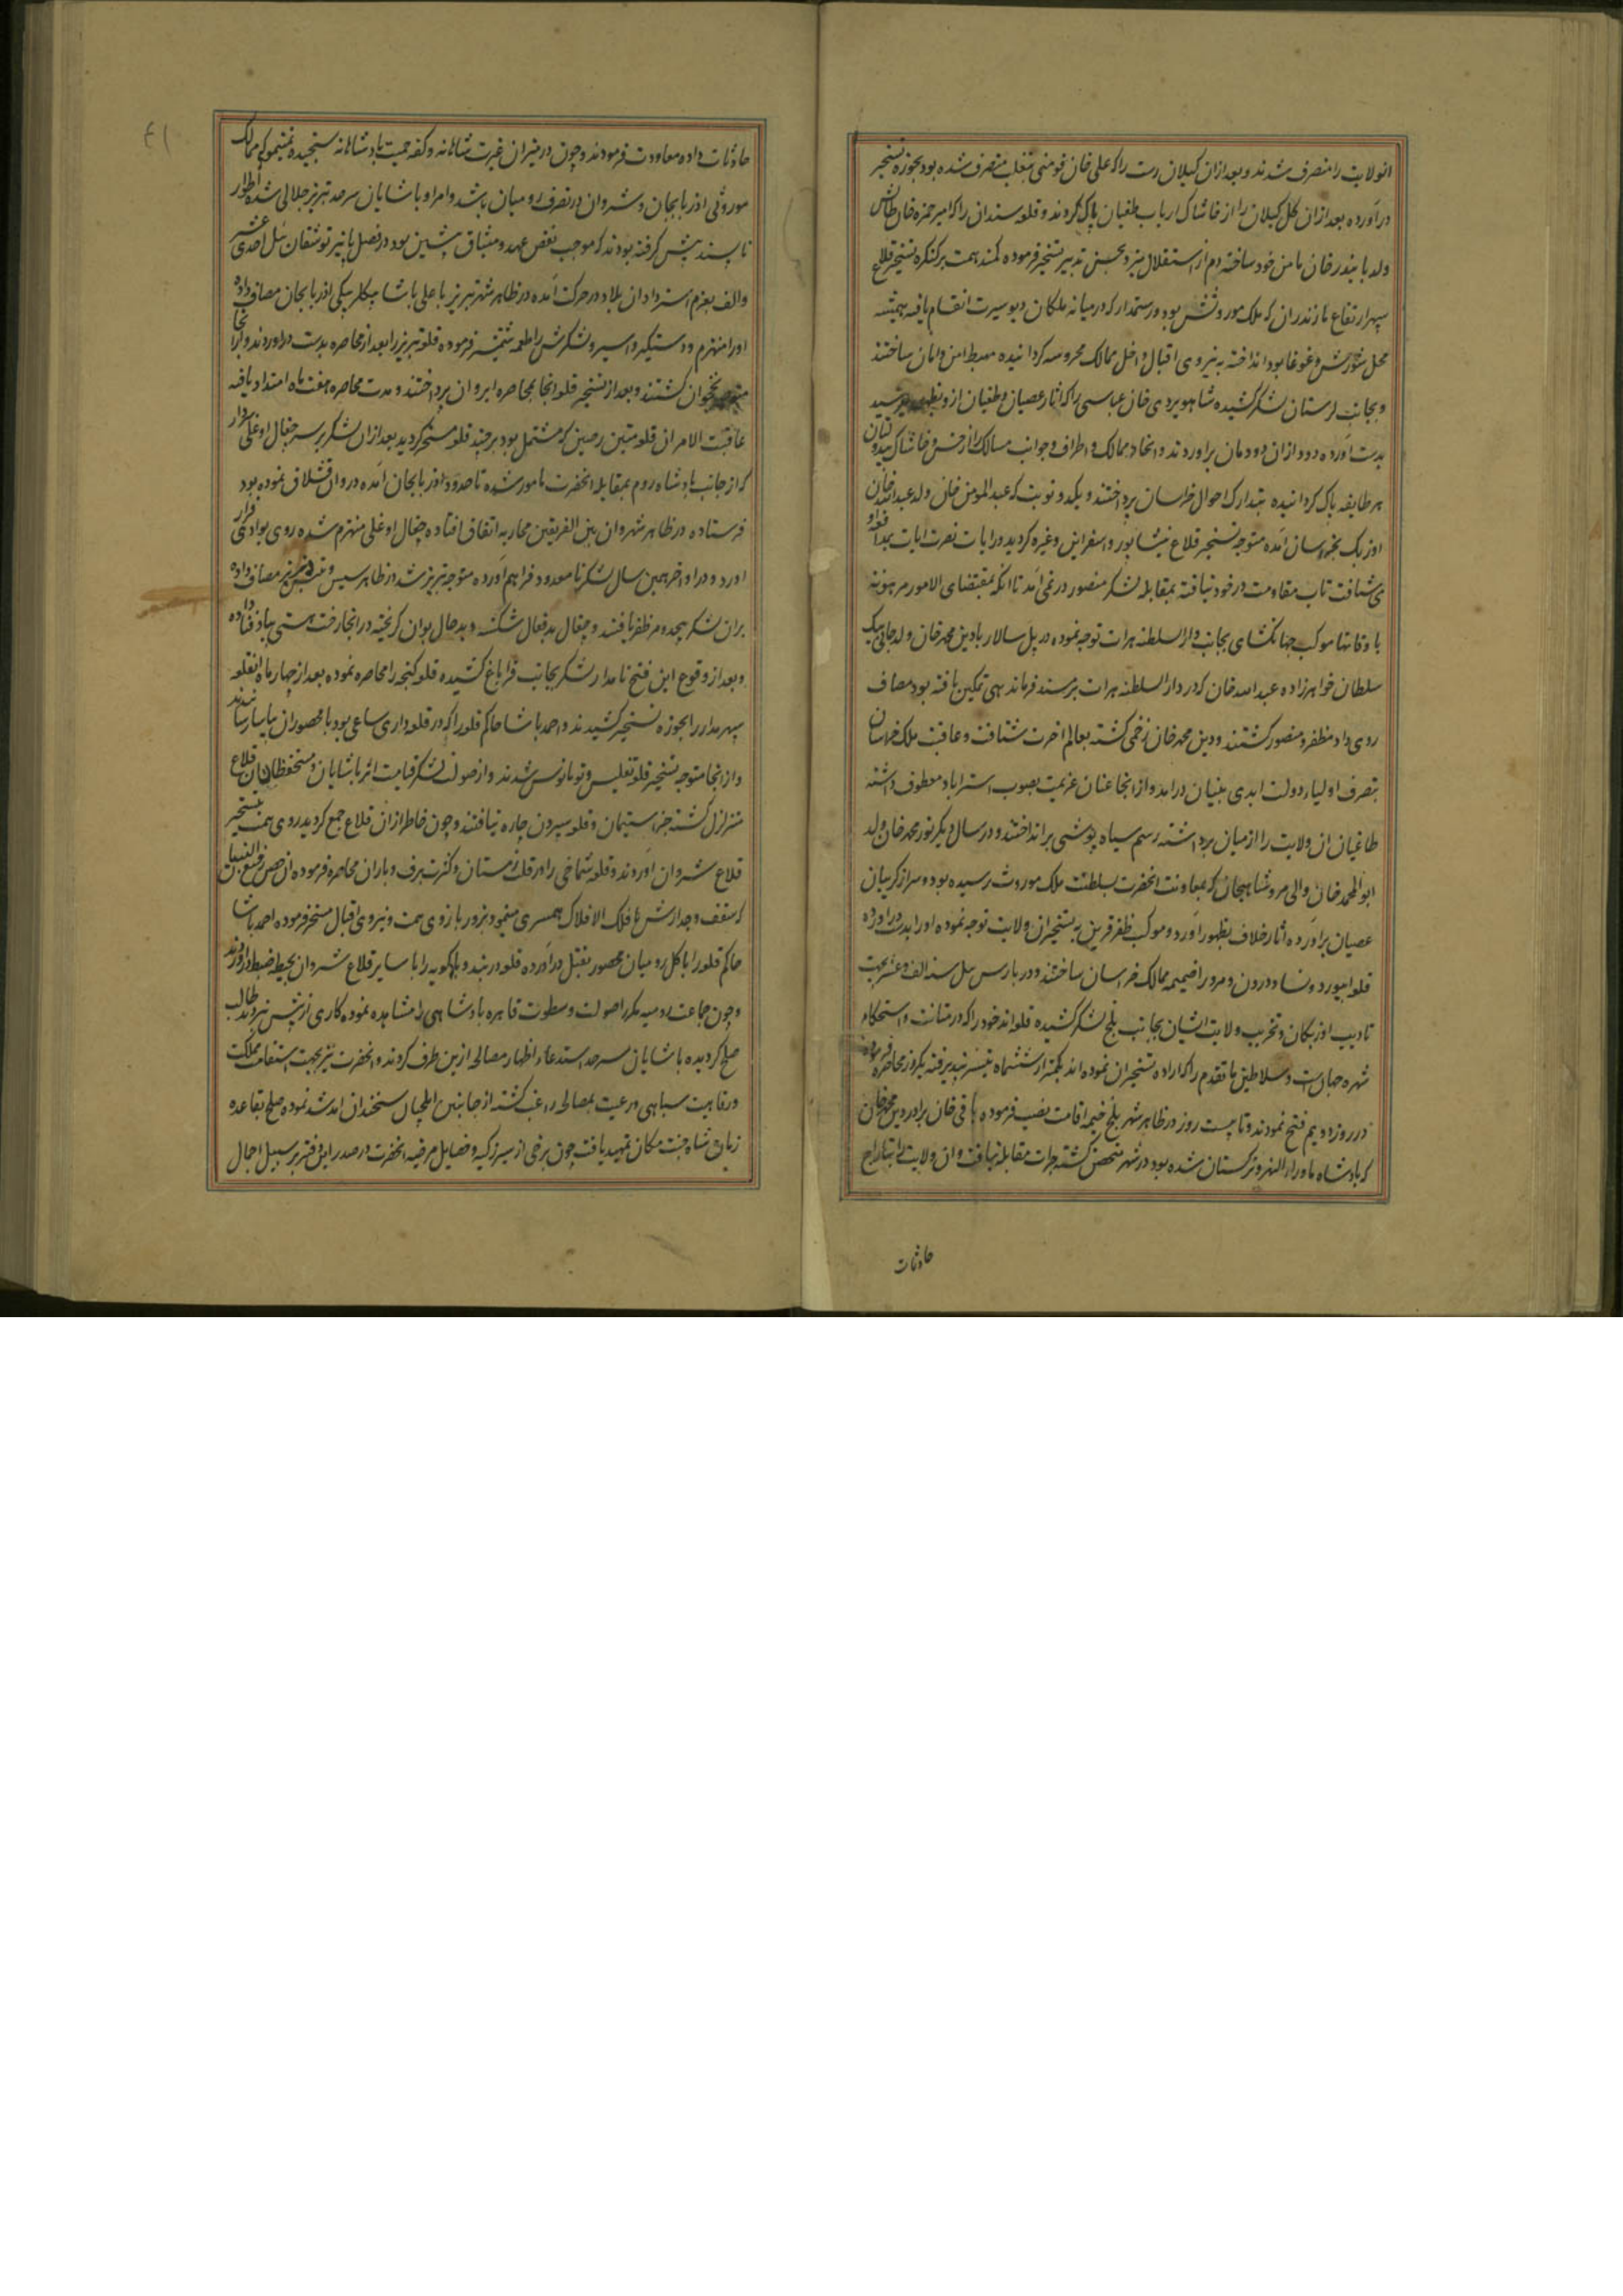 انولایت را متصرف شدند و بعد از ان کیلان رست را که علی خان فومنی بتغلب متصرف شده بود بحوزه تسخیر
در آورده بعد از ان کل کیلان را از خاشاک ارباب طغیان پاک کردند و قلعه سندان را که امیر حمزه خان طالش
ولد بایندر خان مامن خود ساخته دم از استقلال میزد بحسن تدبیر تسخیر فرموده کمند همت بر کنکره تسخیر قلاع
سپهر ارتفاع مازندران که ملک موروثش بود و رستمدار که در میانه ملکان دیو سیرت انقسام یافته همیشه
محل شورش و غوغا بود انداخته به نیروی اقبال داخل ممالک محروسه کردانیده مهبط امن و امان ساختند
و بجانب لرستان لشکر کشیده شاهویردی خان عباسی را که اثار عصیان و طغیان ازو بظهور میرسید
بدست آورده دود از ان دودمان براوردند و انحاء ممالک و اطراف و جوانب مسالک را از خس و خاشاک بیدولتان
هر طایفه پاک کردانیده بتدارک احوال خراسان پرداختند و یکدو نوبت که عبدالمومن خان ولد عبدالله خان
اوزبک بخراسان آمده متوجه تسخیر قلاع نیشابور و اسفراین و غیره کردید و رایات نصرت ایات بمدافعه او
می شتافت تاب مقاومت در خود نیافته بمقابله لشکر منصور در نمی آمد تا انکه بمقتضای الامور مرهونه
باوقاتها موکب جهانکشای بجانب دارالسلطنه هرات توجه نموده در پل سالار با دین محمد خان ولد جانی بیک
سلطان خواهرزاده عبدالله خان که در دار السلطنه هرات بر مسند فرماندهی تمکین یافته بود مصاف
روی داد مظفر و منصور کشتند و دین محمد خان زخمی کشته بعالم اخرت شتافت و عاقبت ملک خراسان
بتصرف اولیاء دولت ابدی بنیان درامد و از انجا عنان عزیمت بصوب استراباد معطوف داشته
طاغیان ان ولایت را از میان برداشته رسم سیاه پوشی برانداختند و در سال دیکر نور محمد خان ولد
ابوالمحمد خان والی مرو شاهیجان که بمعاونت انحضرت بسلطنت ملک موروث رسیده بود و سر از کریبان
عصیان برآورده اثار خلاف بظهور آورد و موکب ظفر قرین به تسخیر ان ولایت توجه نموده او را بدست دراورده
قلعه ابیورد و نسا و درون و مرو را ضمیمه ممالک خراسان ساختند و در بارس ئیل سنه الف و عشر بجهت
تادیب اوزبکان و تخریب ولایت ایشان بجانب بلخ لشکر کشیده قلعه اندخود را که در متانت و استحکام
شهره جهان است و سلاطین ماتقدم را که اراده تسخیر ان نموده اند بکمتر از ششماه تیسر نپذیرفته یکروز محاصره فرموده
در روز دویم فتح نمودند و تا بیست روز در ظاهر شهر بلخ خیمه اقامت نصب فرموده باقی خان برادر دین محمد خان
که پادشاه ماوراء النهر و ترکستان شده بود در شهر متحصن کشته جرات مقابله نیافت و ان ولایت را بتاراج
حادثات
۴۱
حادثات داده معاودت فرمودند و چون در میزان غیرت شاهانه و کفه حمیت پادشاهانه سنجیده نمیشود که ممالک
موروثی اذربایجان و شروان در تصرف رومیان باشد و امرا و پاشایان سرحد تبریز جلالی شده اطوار
ناپسند پیش کرفته بودند که موجب نقض عهد و میثاق پیشین بود در فصل پائیز توشقان ئیل احدی عشر
والف بعزم استرداد ان بلاد در حرکت آمده در ظاهر شهر تبریز با علی پاشا بیکلربیکی اذربایجان مصاف داده
او را منهزم و دستیکر و اسیر و لشکرش را طعمه شمشیر فرموده قلعه تبریز را بعد از محاصره بدست دراوردند و از انجا
متوجه نخجوان کشتند و بعد از تسخیر قلعه انجا بمحاصره ایروان پرداختند و مدت محاصره هفت ماه امتداد یافته
عاقبت الامر ان قلعه متین رصین که مشتمل بود بر چند قلعه مسخر کردید بعد از ان لشکر بر سر چغال اوغلی سردار
که از جانب پادشاه روم بمقابله انحضرت مامور شده تا حدود اذربایجان آمده در وان قشلاق نموده بود
فرستاده در ظاهر شهر وان بین الفریقین محاربه اتفاق افتاده چغال اوغلی منهزم شده روی بوادی فرار
اورد و در اواخر همین سال لشکر نامعدود فراهم آورده متوجه تبریز شد از ظاهر سیس و تبریز مصاف داده
بران لشکر بیحد و مر ظفر یافتند و چغال بدفعال شکسته و بدحال بوان کریخته در انجا رخت هستی بباد فنا داده
و بعد از وقوع این فتح نامدار لشکر بجانب قراباغ کشیده قلعه کنجه را محاصره نموده بعد از چهار ماه انقلعه
سپهر مدار را بحوزه تسخیر کشیدند و احمد پاشا حاکم قلعه را که در قلعه داری ساعی بود با محصوران بیاسا رسانیدند
و از انجا متوجه تسخیر قلعه تفلیس و تومانوس شدند و از صولت لشکر قیامت اثر پاشایان و مستحفظان ان قلاع
متزلزل کشته جز استیمان و قلعه سپردن چاره نیافتند و چون خاطر ازان قلاع جمع کردید روی همت بتسخیر
قلاع شروان آوردند و قلعه شماخی را در قلب زمستان و کثرت برف و باران محاصره فرموده ان حصن رفیع البنیان
که سقف و جدارش با فلک الافلاک همسری مینمود بزور بازوی همت و نیروی اقبال مسخر فرموده احمد پاشا
حاکم قلعه را با کل رومیان محصور بقتل درآورده قلعه دربند و باکویه را با سایر قلاع شروان بحیطه ضبط دراوردند
و چون جماعت رومیه مکررا صولت و سطوت قاهره پادشاهی را مشاهده نموده کاری از پیش نبردند طالب
صلح کردیده پاشایان سرحد استدعاء اظهار مصالحه ازین طرف کردند و انحضرت نیز بجهت استقامت مملکت
و رفاهیت سپاهی و رعیت بمصالحه راغب کشته از جانبین ایلچیان سخندان امد شد نموده صلح بقاعده
زمان شاه جنت مکان تمهید یافت چون برخی از سیر زکیه و فضایل مرضیه انحضرت در صدر این دفتر بر سبیل اجمال